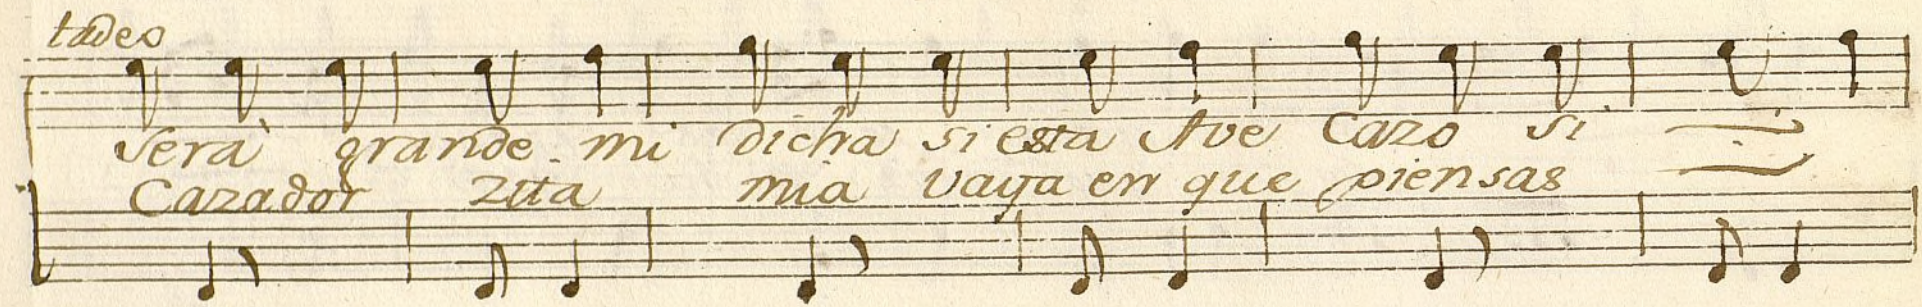 tades
Serà grande mi dicha si esta Ave Cazo si
Cazador zita mia vaya en que piensas